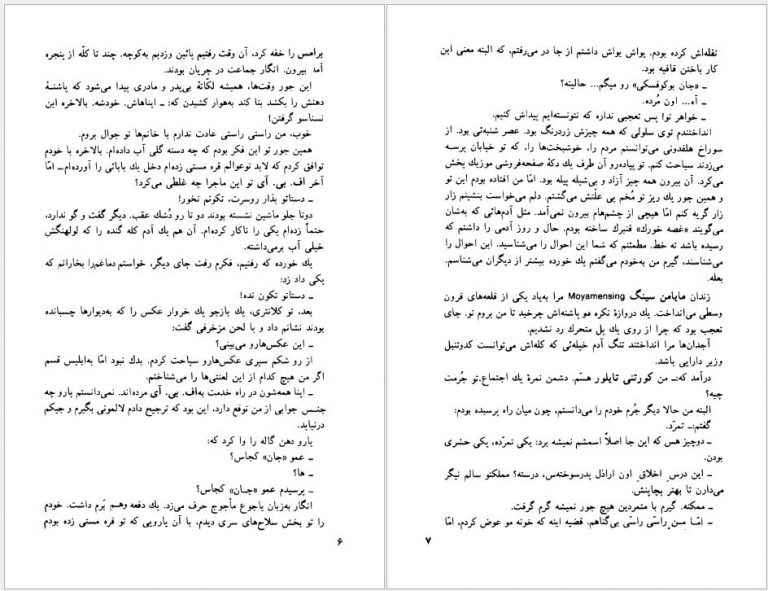 برامس را خفه کرد، آن وقت رفتیم پائین وزدیم به‌کوچه. چند تا کلّه از پنجره
آمد بیرون. انگار جماعت در جریان بودند.
این جور وقت‌ها، همیشه لکّاتهٔ بی‌پدر و مادری پیدا می‌شود که پاشنهٔ
دهنش را بکشد بنا کند به‌هوار کشیدن که: ـ ایناهاش. خودشه. بالاخره این
نسناسو گرفتن!
خوب، من راستی راستی عادت ندارم با خانم‌ها تو جوال بروم.
همین جور تو این فکر بودم که چه دسته گلی آب داده‌ام. بالاخره با خودم
توافق کردم که لابد توعوالم قره مستی زده‌ام دخل یك بابائی را آورده‌ام ـ امّا
آخر اف. بی. آی تو این ماجرا چه غلطی می‌کرد؟
ـ دستاتو بذار روسرت، تکونم نخور!
دوتا جلو ماشین نشسته بودند دو تا رو دُشك عقب. دیگر گفت و گو ندارد،
حتماً زده‌ام یکی را ناکار کرده‌ام. آن هم یك آدم کله گنده را که لولهنگش
خیلی آب برمی‌داشته.
یك خورده که رفتیم، فکرم رفت جای دیگر، خواستم دماغم‌را بخارانم که
یکی داد زد:
ـ دستاتو تکون نده!
بعد، تو کلانتری، یك بازجو یك خروار عکس را که به‌دیوارها چسبانده
بودند نشانم داد و با لحن مزخرفی گفت:
ـ این عکس‌هارو می‌بینی؟
از رو شکم سیری عکس‌هارو سیاحت کردم. بدك نبود امّا به‌ابلیس قسم
اگر من هیچ کدام از این لعنتی‌ها را می‌شناختم.
ـ اینا همه‌شون در راه خدمت به‌اف. بی. آی مرده‌اند. نمی‌دانستم یارو چه
جنـس جوابی از من توقع دارد، این بود که ترجیح دادم لالمونی بگیرم و جیکم
درنیاید.
یارو دهن گاله را وا کرد که:
ـ عمو «جان» کجاس؟
ـ ها؟
ـ پرسیدم عمو «جـان» کجاس؟
انگار به‌زبان یاجوع مأجوج حرف می‌زد. یك دفعه وهـم بَرم داشت. خودم
را تو بخش سلاح‌های سری دیدم، با آن یارویی که تو قره مستی زده بودم
۶
نقله‌اش کرده بودم. یواش یواش داشتم از جا در می‌رفتم، که البته معنی این
کار باختن قافیه بود.
ـ «جان بوکوفسکی» رو میگم... حالیته؟
ـ آه... اون مُرده.
ـ خواهر تو! پس تعجبی نداره که نتونسته‌ایم پیداش کنیم.
انداختندم توی سلولی که همه چیزش زردرنگ بود. عصر شنبه‌ئی بود. از
سوراخ هلفدونی می‌توانستم مردم را، خوشبخت‌ها را، که تو خیابان پرسـه
می‌زدند سیاحت کنم. تو پیاده‌رو آن طرف یك دکهٔ صفحه‌فروشی موزیك پخش
می‌کرد. آن بیرون همه چیز آزاد و بی‌شیله پیله بود. امّا من افتاده بودم این تو
و همین جور یك ریز تو مُخم پی علّتش می‌گشتم. دلم می‌خواست بنشینم زار
زار گریه کنم امّا هیچی از چشم‌هام بیرون نمی‌آمد. مثل آدم‌هائی که به‌شان
می‌گویند «غصه خورك» قنبرك ساخته بودم. حال و روز آدمی را داشتم که
رسیده باشد ته خط. مطمئنم که شما این احوال را می‌شناسید. این احوال را
می‌شناسند، گیرم من به‌خودم می‌گفتم یك خورده بیشتر از دیگران می‌شناسم.
بعله.
زندان مایامن سینگ Moyamensing مرا به‌یاد یکی از قلعه‌های قرون
وسطی می‌انداخت. یك دروازهٔ نکره مو پاشنه‌اش چرخید تا من بروم تو. جای
تعجب بود که چرا از روی یك پل متحرك رد نشدیم.
آجدان‌ها مرا انداختند تنگ آدم خپله‌ئی که کله‌اش می‌توانست کدوتنبل
وزیر دارایی باشد.
درآمد که ـ من کورتنی تایلور هسّم، دشمن نمرهٔ یك اجتماع. تو جُرمت
چیه؟
البته من حالا دیگر جُرم خودم را می‌دانستم، چون میان راه پرسیده بودم:
گفتم:ـ تمرّد.
ـ دوچیز هس که این جا اصلاً اسمشم نمیشه برد: یکی نمرّده، یکی حشری
بودن.
ـ این درس اخلاق اون اراذل پدرسوخته‌س، درسته؟ مملکتو سالم نیگر
می‌دارن تا بهتر بچاپنش.
ـ ممکنه. گیرم با متمردین هیچ جور نمیشه گرم گرفت.
ـ امّـا مسن راسّی راسّی بی‌گناهم. قضیه اینه که خونه مو عوض کردم، امّا
۷